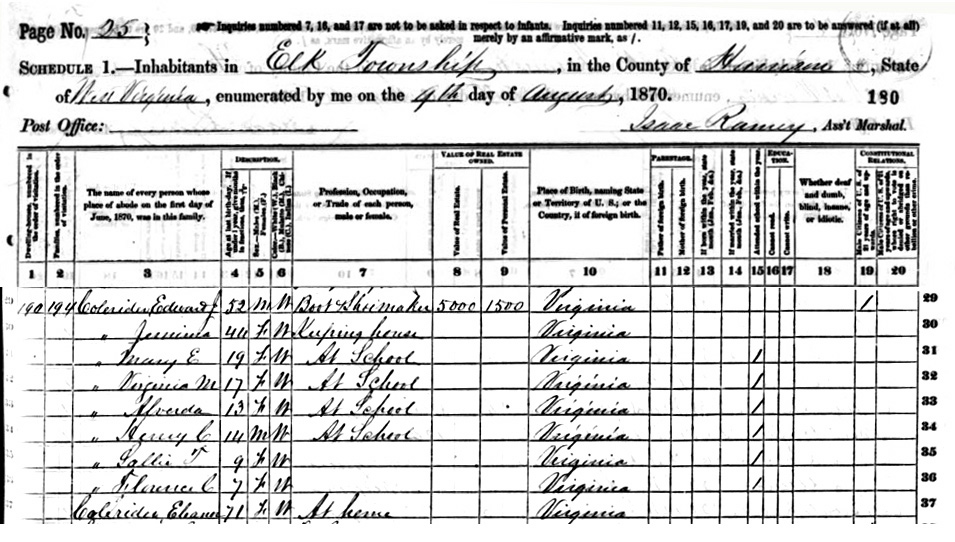 Page No. 25
Inquiries numbered 7, 16, and 17 are not to be asked in respect to infants. Inquiries numbered 11, 12, 15, 16, 17, 19, and 20 are to be answered (if at all)
merely by an affirmative mark, as /.
SCHEDULE 1.—Inhabitants in Elk Township, in the County of Harrison, State
of West Virginia, enumerated by me on the 9th day of August, 1870. 180
Post Office: Isaac Ramey, Ass't Marshal.
DESCRIPTION. VALUE OF REAL ESTATE OWNED. PARENTAGE. EDUCATION. CONSTITUTIONAL RELATIONS.
Dwelling-houses, numbered in the order of visitation.
Families, numbered in the order of visitation.
The name of every person whose place of abode on the first day of June, 1870, was in this family.
Age at last birth-day.
Sex.—Males (M.), Females (F.)
Profession, Occupation, or Trade of each person, male or female.
Value of Real Estate.
Value of Personal Estate.
Place of Birth, naming State or Territory of U. S.; or the Country, if of foreign birth.
Father of foreign birth.
Mother of foreign birth.
Attended school within the year.
Cannot read.
Cannot write.
Whether deaf and dumb, blind, insane, or idiotic.
1 2 3 4 5 6 7 8 9 10 11 12 13 14 15 16 17 18 19 20
190 194 Colerider, Edward J 52 M W Boot & Shoimaker 5000 1500 Virginia 1 29
" Jemima 44 F W Keeping house Virginia 30
" Mary E 19 F W At School Virginia 1 31
" Virginia M 17 F W At School Virginia 1 32
" Alverda 13 F W At School Virginia 1 33
" Henry C 14 M W At School Virginia 1 34
" Sallie T 9 F W Virginia 1 35
" Florence C 7 F W Virginia 1 36
Colerider, Eleanor 71 F W At home Virginia 37